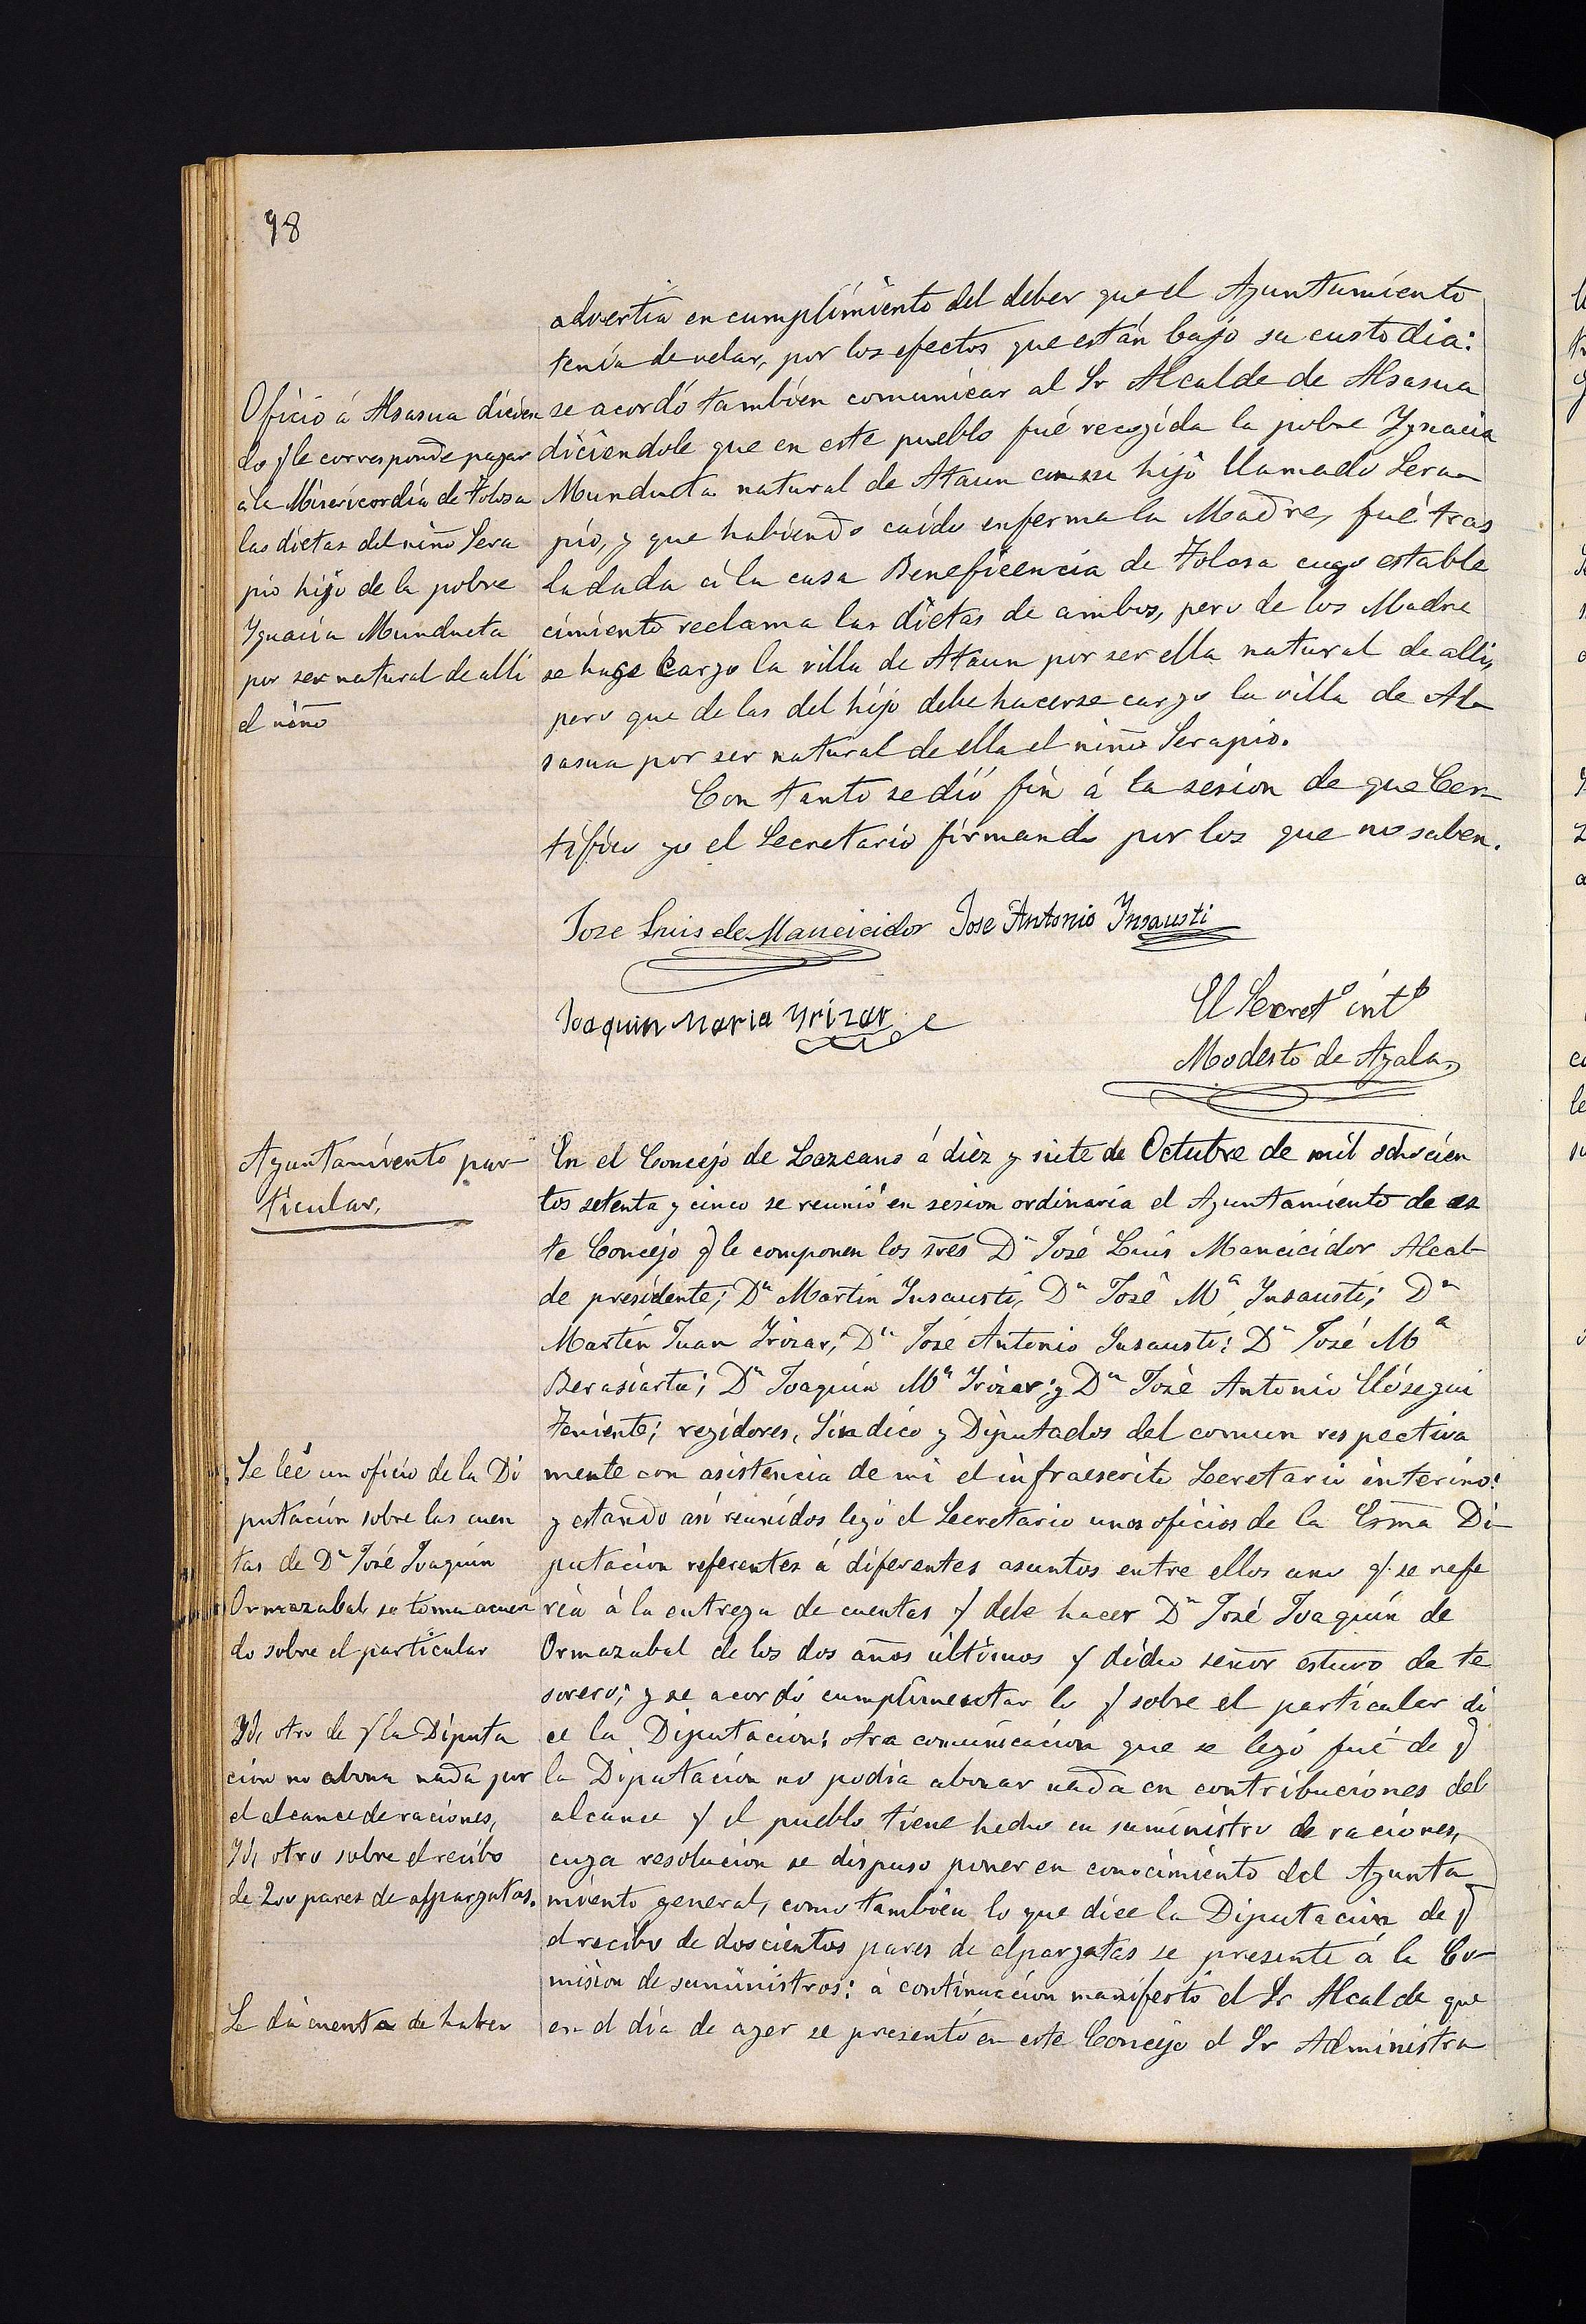 98
advertia en cumplimiento del deber que el Ayuntamiento
tenia de velar, por los efectos que están bajo su custodia:
se acordó tambien comunicar al Sr Alcalde de Alsasua
diciendole que en este pueblo fué recogida la pobre Ygnacia
Munducta natural de Ataun con su hijo llamado Sera-
pio, y que habiendo caido enferma la Madre, fué tras
ladada á la casa Beneficencia de Tolosa cuyo estable
cimiento reclama las dietas de ambos, pero de los Madre
se hage Cargo la villa de Ataun por ser ella natural de alli,
pero que de las del hijo debe hacerse cargo la villa de Al-
sasua por ser natural de ella el niño Serapio.
Oficio á Alsasua dicien
do q le corresponde pagar
á la Misericordia de Tolosa
las dietas del niño Sera
pio hijo de la pobre
Ygnacia Munducta
por ser natural de alli
el niño
Con tanto se dió fin á la sesion de que Cer-
tifico yo el Secretario firmando por los que no saben.
Jose Luis de Mancicidor Jose Antonio Ynsausti
Joaquin Maria Yrizar
El Secretº intº
Modesto de Ayala
Ayuntamiento par-
ticular,
En el Concejo de Lazcano á diez y siete de Octubre de mil ochocien
tos setenta y cinco se reunió en sesion ordinaria el Ayuntamiento de es
te Concejo q le componen los sres Dn José Luis Mancicidor Alcal-
de presidente; Dn Martin Insausti, Dn José Mª Insausti; Dn
Martin Juan Irizar; Dn José Antonio Insausti; Dn José Mª
Berasiartu; Dn Joaquin Mª Irizar; y Dn José Antonio Ulósegui
Teniente; regidores, Sindico y Diputados del comun respectiva
mente con asistencia de mi el infraescrito Secretario interino:
y estando asi reunidos leyó el Secretario unos oficios de la Esma Di-
putacion referentes á diferentes asuntos entre ellos uno q. se refe
ria á la entrega de cuentas q debe hacer Dn José Joaquin de
Ormazabal de los dos años últimos q dicho señor estuvo de te
sorero; y se acordó cumplimentar lo q sobre el particular di
ce la Diputacion: otra comunicacion que se leyó fué de q
la Diputacion no podia abonar nada en contribuciones del
alcance q el pueblo tiene hecho en suministro de raciones,
cuya resolucion se dispuso poner en conocimiento del Ayunta
miento general, como tambien lo que dice la Diputacion de q
el recibo de doscientos pares de alpargatas se presente á la Co-
mision de suministros: á continuacion manifestó el Sr Alcalde que
en el dia de ayer se presentó en este Concejo el Sr Administra
Se leé un oficio de la Di
putación sobre las cuen
tas de Dn José Joaquin
Ormazabal se toma acuer
do sobre el particular
Yd. otro de q la Diputa
cion no abona nada por
el alcance de raciones,
Yd. otro sobre el recibo
de 200 pares de alpargatas.
Se dá cuenta de haber